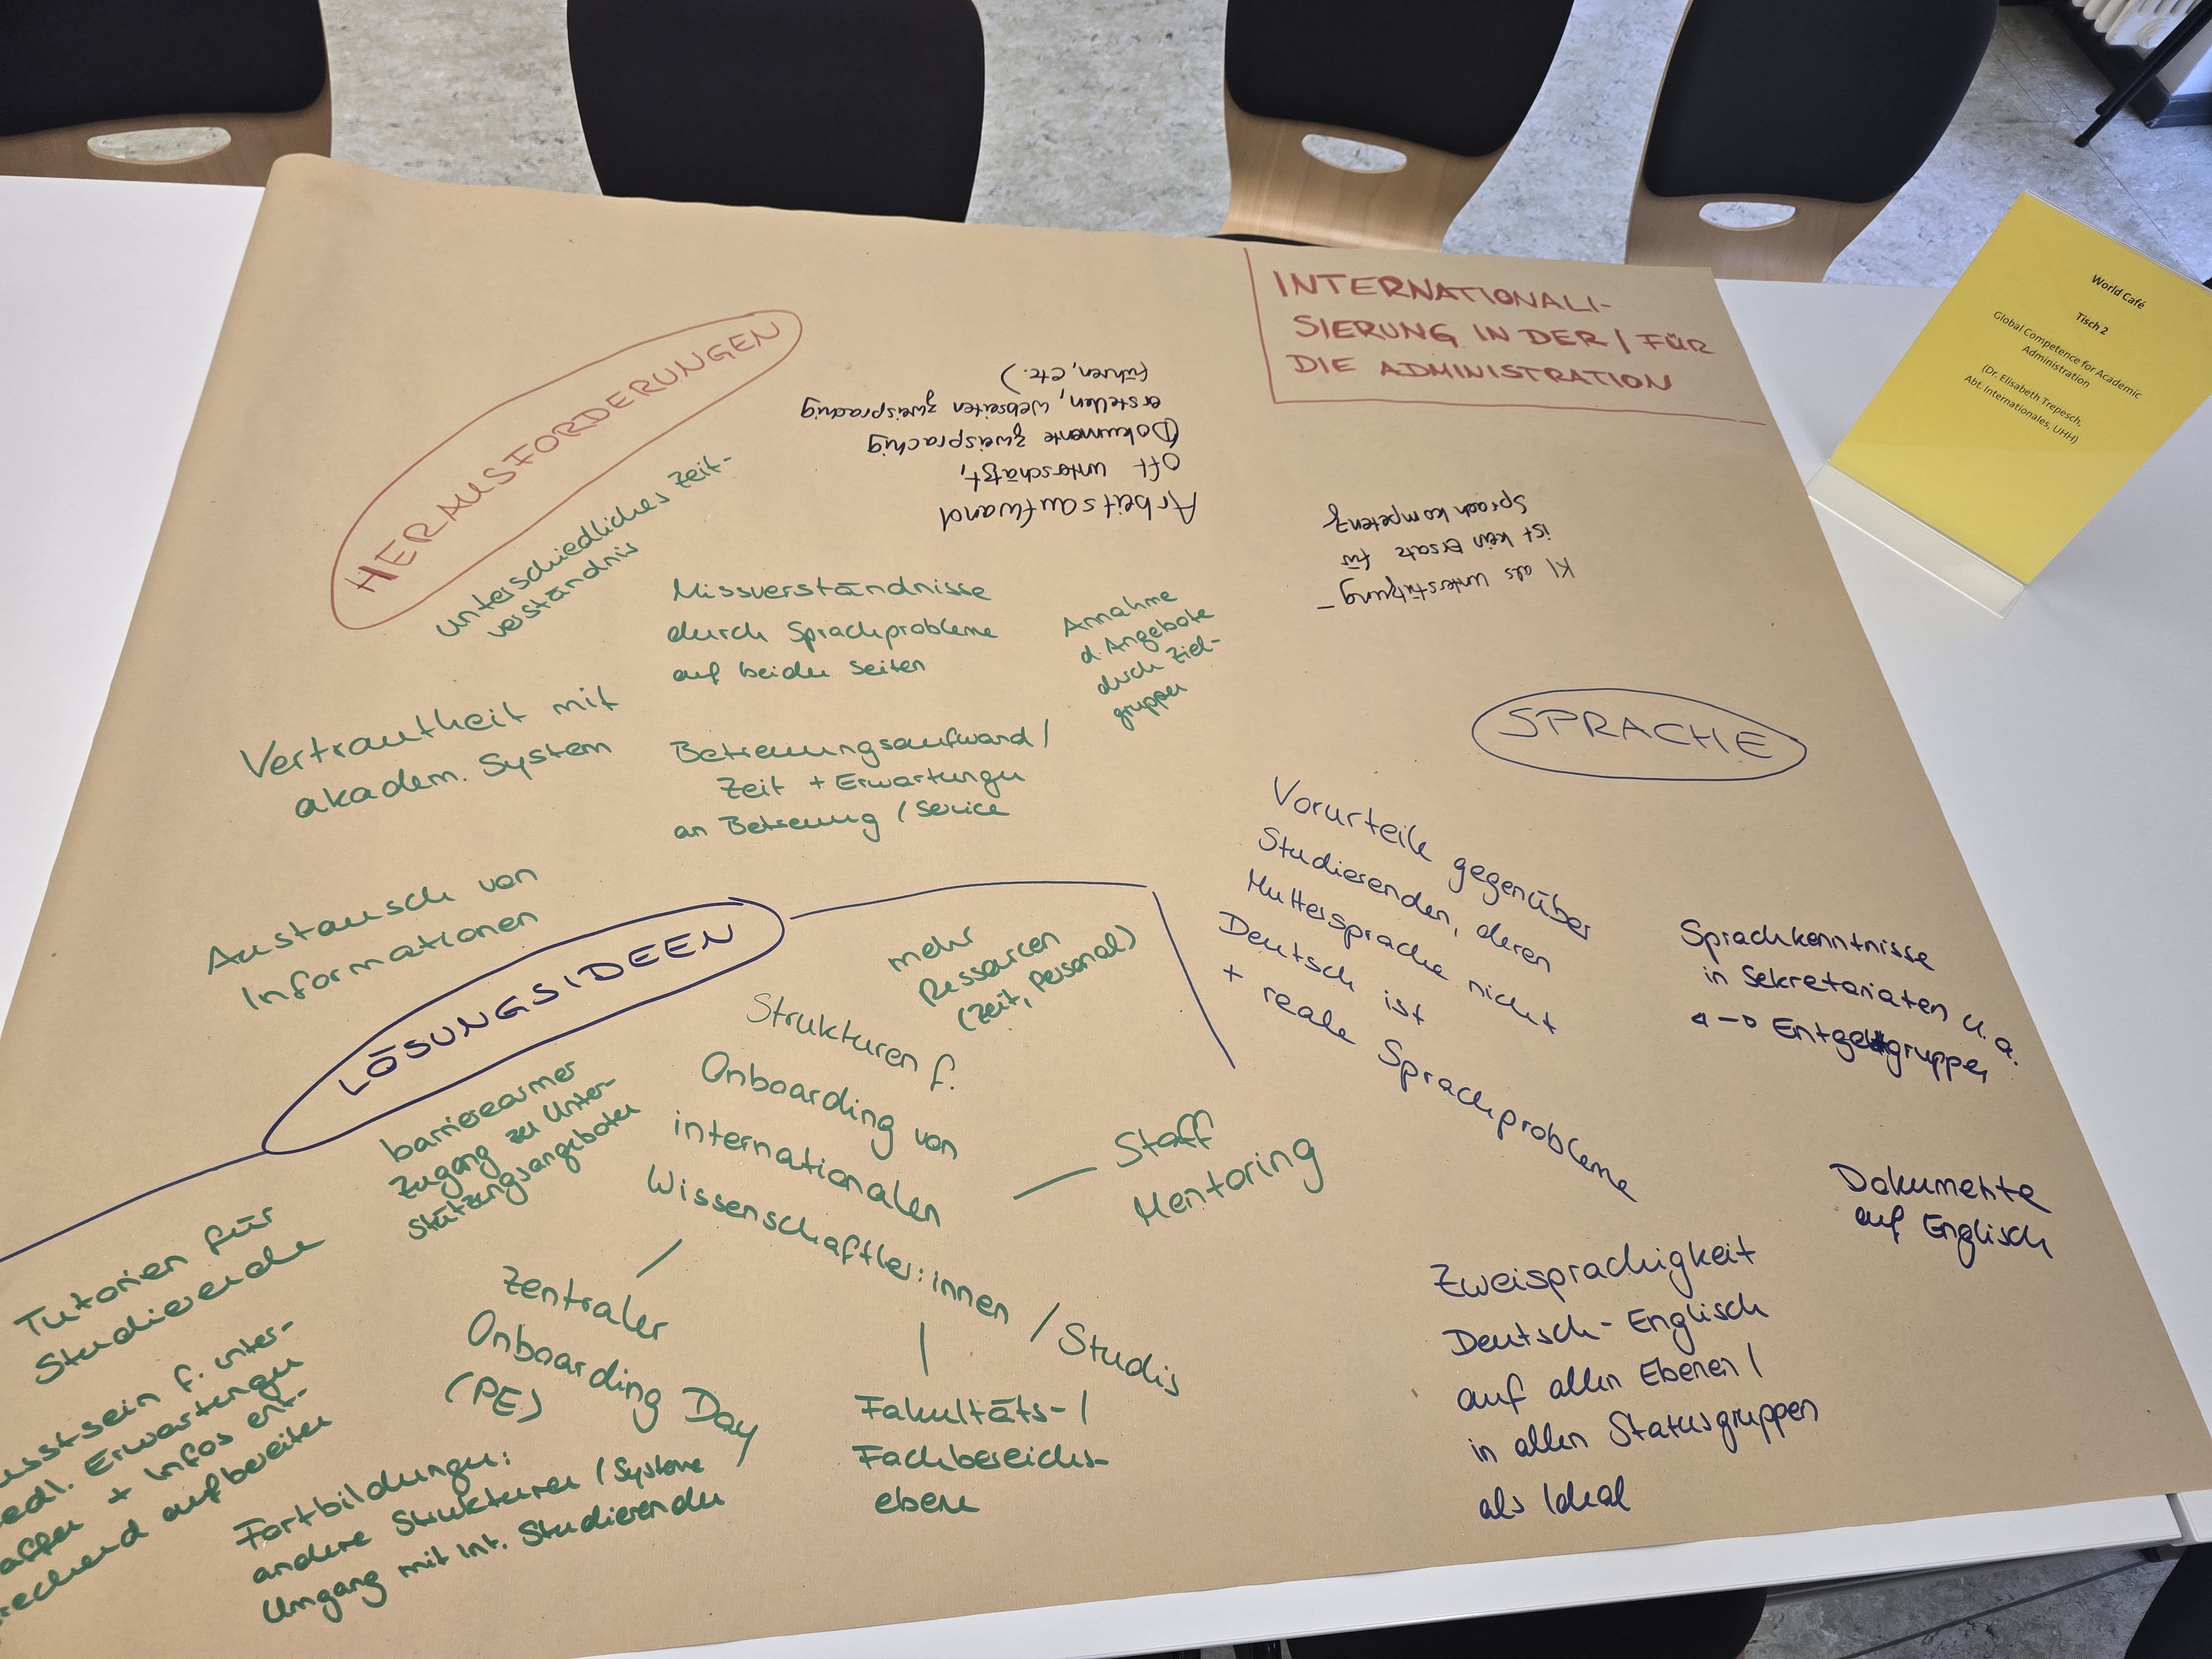 INTERNATIONALI-
SIERUNG IN DER / FÜR
DIE ADMINISTRATION
World Café
Tisch 2
Global Competence for Academic
Administration
(Dr. Elisabeth Trepesch,
Abt. Internationales, UHH)
HERAUSFORDERUNGEN
unterschiedliches Zeit-
verständnis
Arbeitsaufwand
oft unterschätzt,
(Dokumente zweisprachig
erstellen, Webseiten zweisprachig
führen, etc.)
KI als Unterstützung –
ist kein Ersatz für
Sprachkompetenz
Missverständnisse
durch Sprachprobleme
auf beiden Seiten
Annahme
d. Angebote
durch Ziel-
gruppen
Vertrautheit mit
akadem. System
Betreuungsaufwand /
Zeit + Erwartungen
an Betreuung / Service
Austausch von
Informationen
SPRACHE
Vorurteile gegenüber
Studierenden, deren
Muttersprache nicht
Deutsch ist
+ reale Sprachprobleme
Sprachkenntnisse
in Sekretariaten u. a.
Entgeltgruppen
Dokumente
auf Englisch
Zweisprachigkeit
Deutsch-Englisch
auf allen Ebenen /
in allen Statusgruppen
als Ideal
LÖSUNGSIDEEN
mehr
Ressourcen
(Zeit, Personal)
barrierearmer
Zugang zu Unter-
stützungsangeboten
Strukturen f.
Onboarding von
internationalen
Wissenschaftler:innen / Studis
Staff
Mentoring
Zentraler
Onboarding Day
(PE)
Fakultäts- /
Fachbereichs-
ebene
Tutorien für
Studierende
f. unter-
Erwartungen
+ Infos ent-
aufbereiten
Fortbildungen:
andere Strukturen / Systeme
Umgang mit int. Studierenden